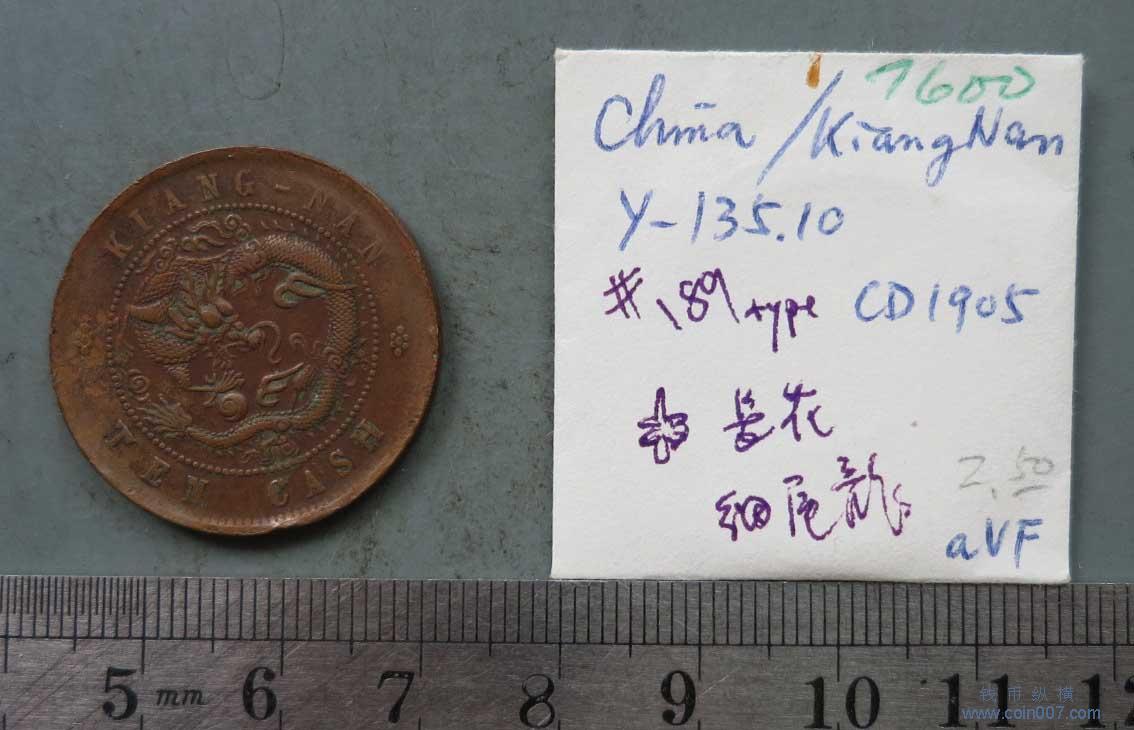 KIANG-NAN
TEN CASH
7600
China/KiangNan
Y-135.10
#189 type CD1905
長花
細尾龍
2.50
aVF
5 mm 6 7 8 9 10 11 12
钱币纵横
www.coin007.com